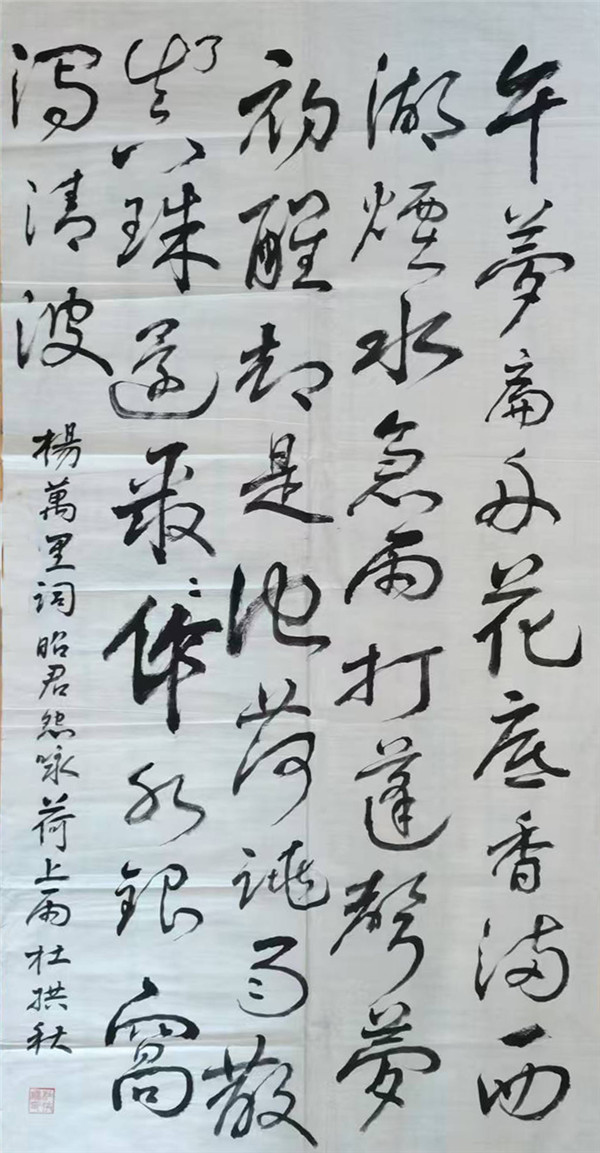 午夢扁舟花底香滿西
湖煙水急雨打蓬聲夢
初醒却是池荷跳雨散
了真珠還聚〻作水銀窩
瀉清波
楊萬里詞昭君怨咏荷上雨杜拱秋